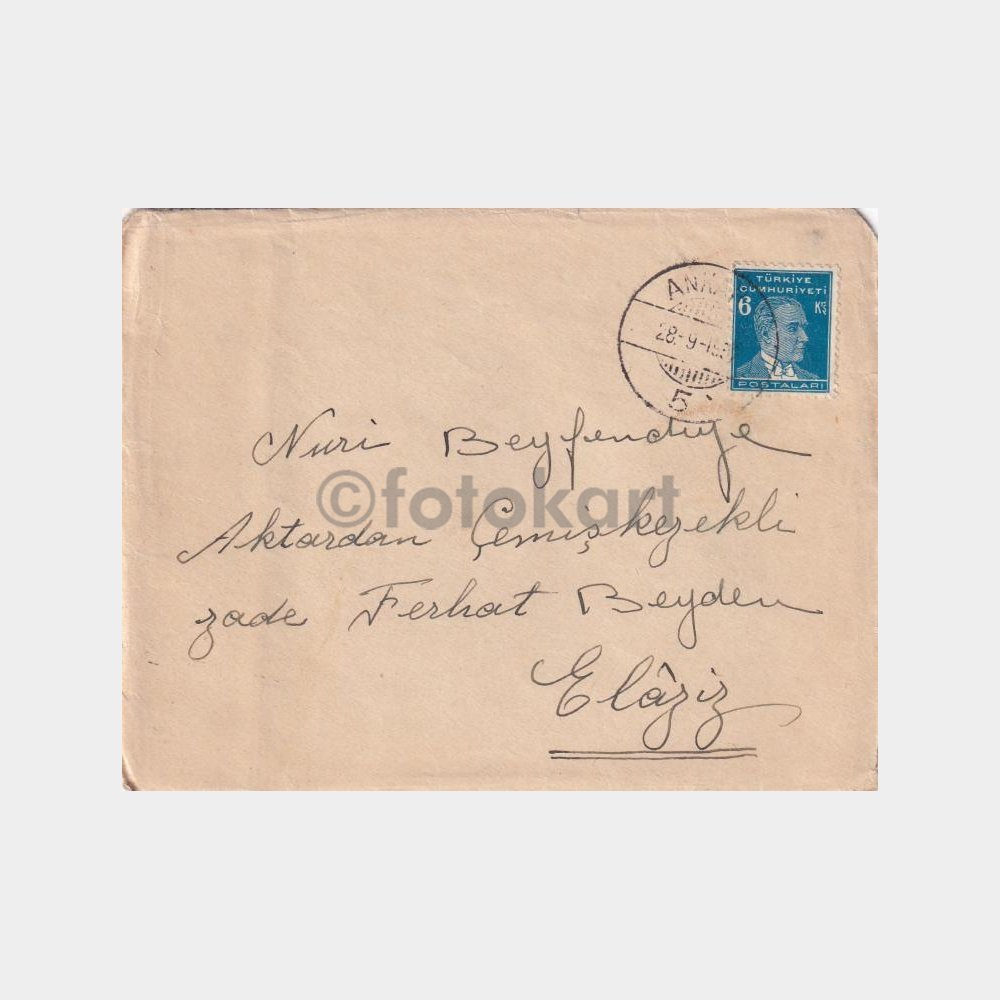 TÜRKİYE
CUMHURİYETİ
6 Krş
POSTALARI
28-9-19
5
Nuri Beyfendiye
©fotokart
Aktardan Çemişkezekli
zade Ferhat Beyden
Elâziz